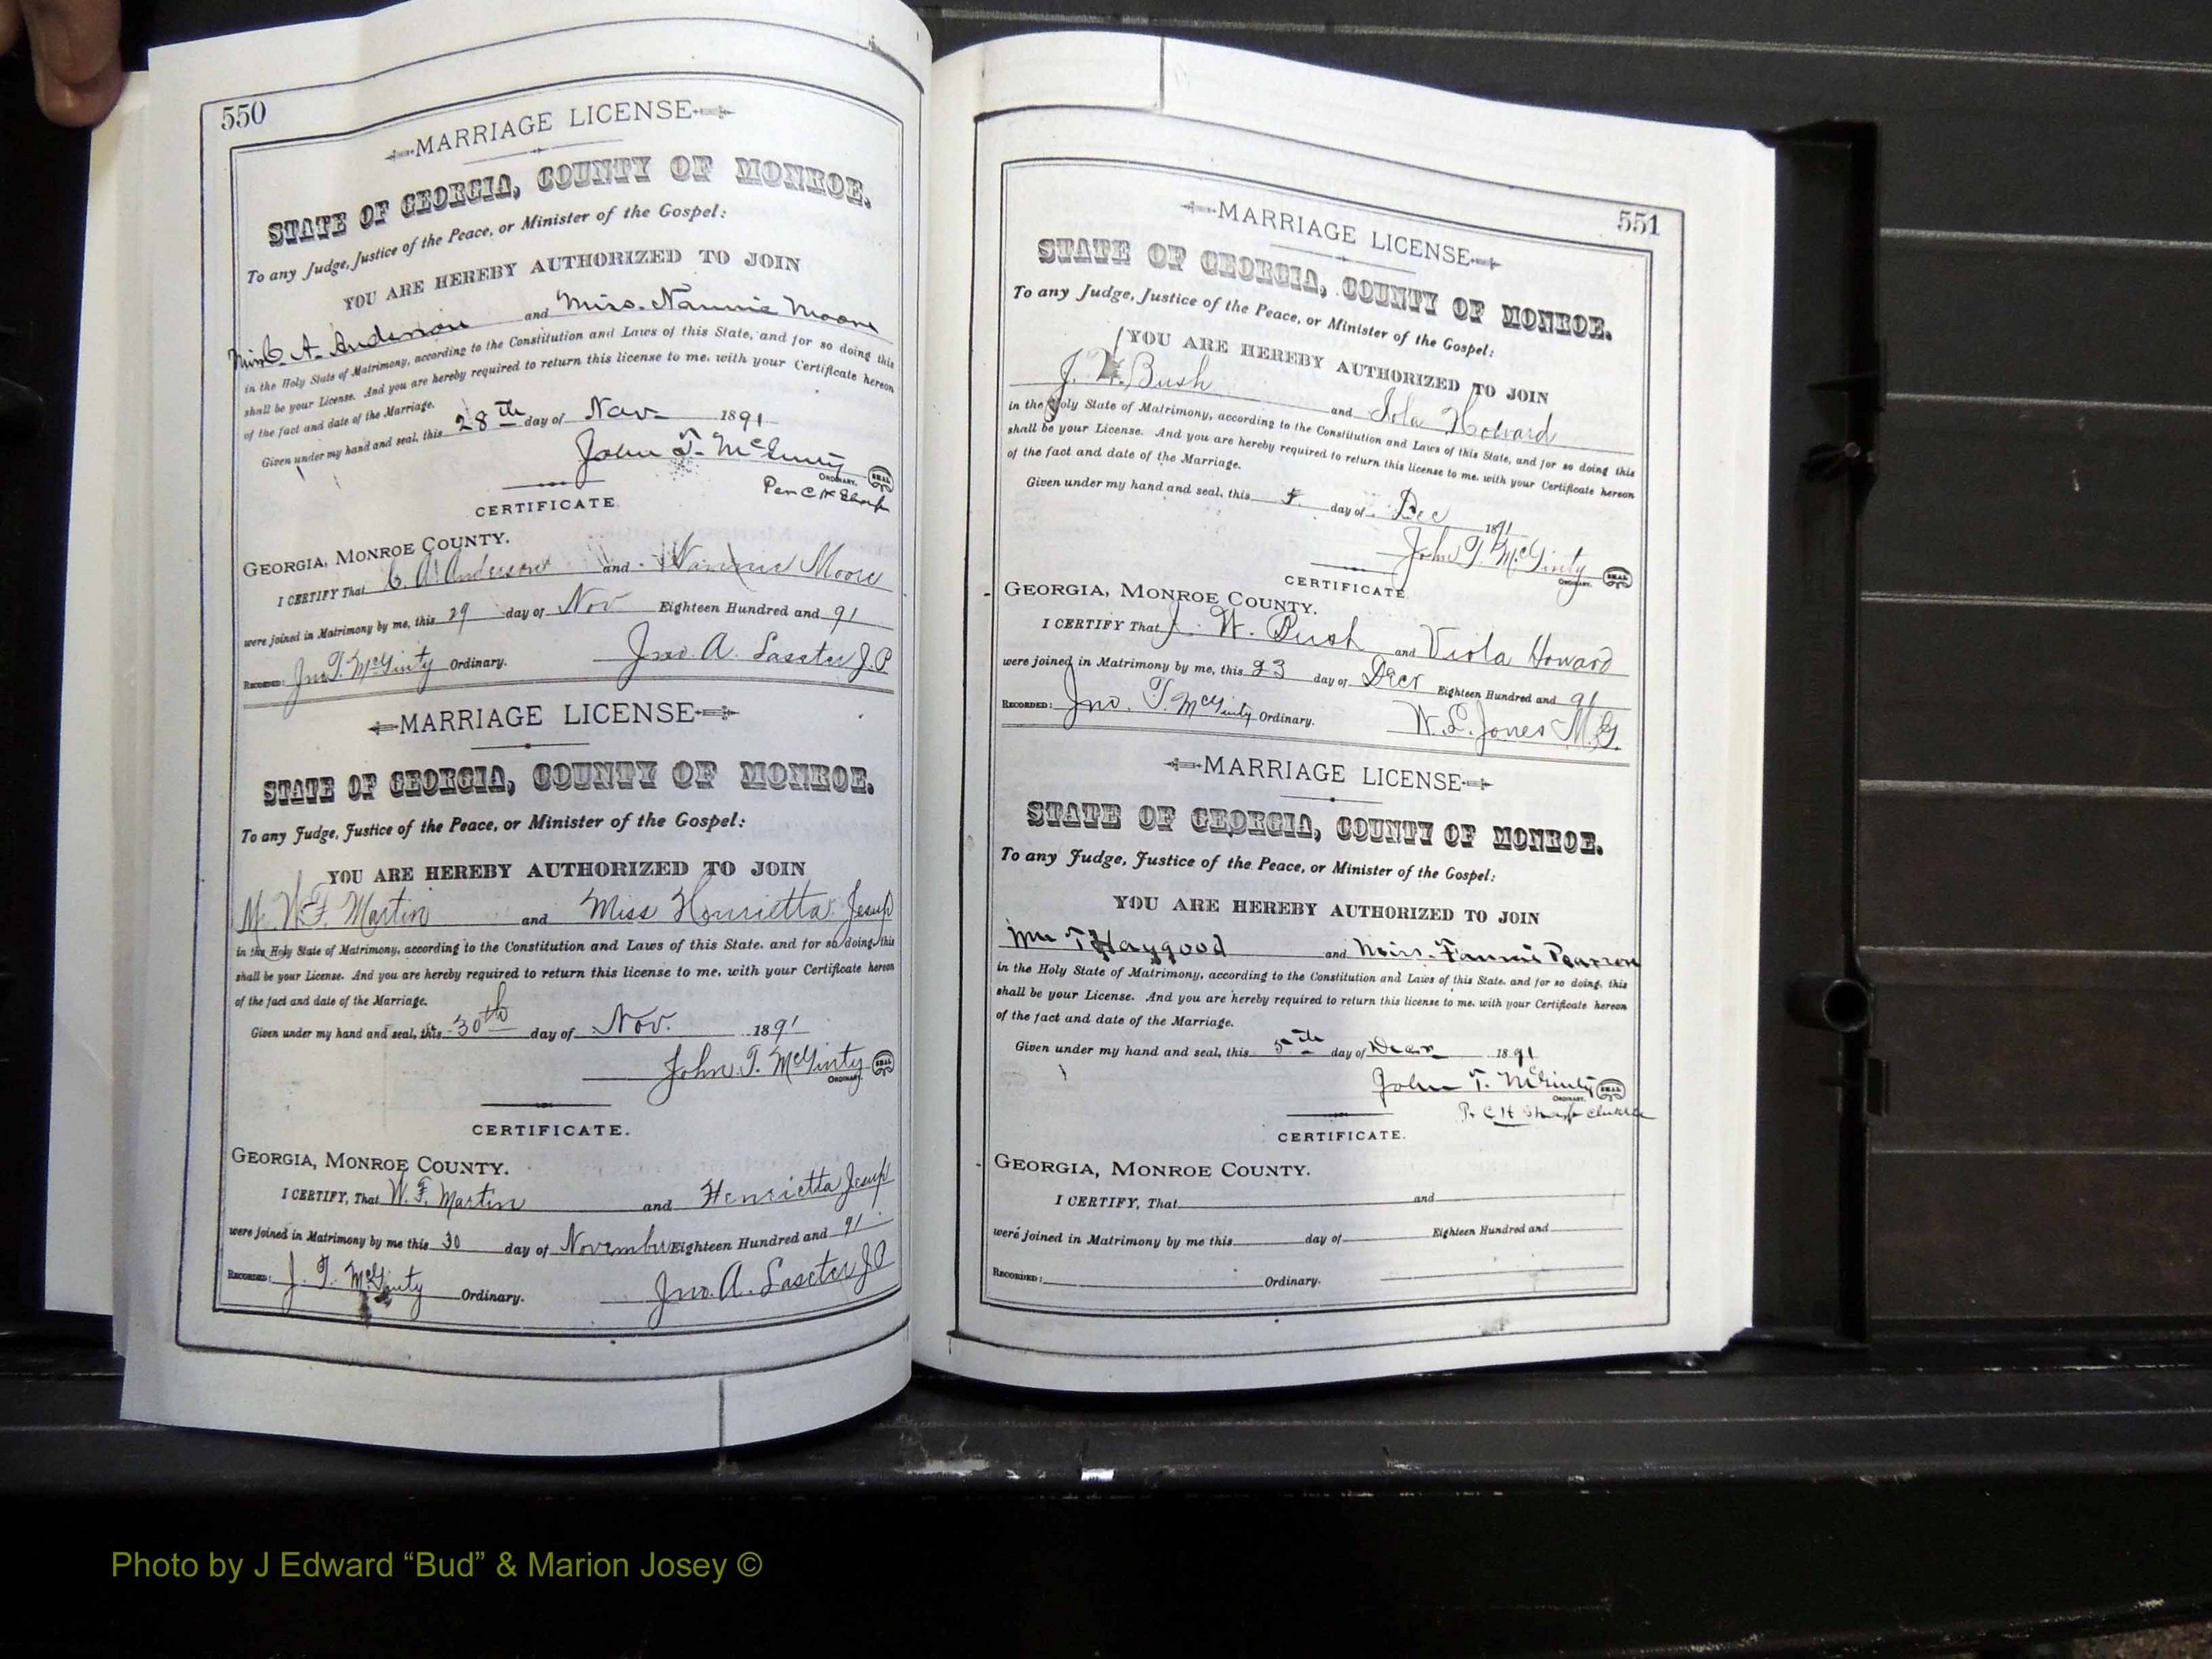 550
MARRIAGE LICENSE
STATE OF GEORGIA, COUNTY OF MONROE.
To any Judge, Justice of the Peace, or Minister of the Gospel:
YOU ARE HEREBY AUTHORIZED TO JOIN
C. A. Anderson and Miss. Nannie Moore
in the Holy State of Matrimony, according to the Constitution and Laws of this State, and for so doing this
shall be your License. And you are hereby required to return this license to me, with your Certificate hereon
of the fact and date of the Marriage.
Given under my hand and seal, this 28th day of Nov 1891
John T. McGinty SEAL
ORDINARY.
Per C H Sharp
CERTIFICATE.
GEORGIA, MONROE COUNTY.
I CERTIFY That C. A. Anderson and Nannie Moore
were joined in Matrimony by me, this 29 day of Nov Eighteen Hundred and 91
RECORDED: Jno T. McGinty Ordinary. Jno. A. Lasseter J.P
MARRIAGE LICENSE
STATE OF GEORGIA, COUNTY OF MONROE.
To any Judge, Justice of the Peace, or Minister of the Gospel:
YOU ARE HEREBY AUTHORIZED TO JOIN
M. W. F. Martin and Miss Henrietta Jesup
in the Holy State of Matrimony, according to the Constitution and Laws of this State, and for so doing this
shall be your License. And you are hereby required to return this license to me, with your Certificate hereon
of the fact and date of the Marriage.
Given under my hand and seal, this 30th day of Nov. 1891
John. T. McGinty SEAL
ORDINARY.
CERTIFICATE.
GEORGIA, MONROE COUNTY.
I CERTIFY, That W. F. Martin and Henrietta Jesup
were joined in Matrimony by me this 30 day of November Eighteen Hundred and 91
RECORDED: J. T. McGinty Ordinary. Jno. A. Lasseter J P
551
MARRIAGE LICENSE
STATE OF GEORGIA, COUNTY OF MONROE.
To any Judge, Justice of the Peace, or Minister of the Gospel:
YOU ARE HEREBY AUTHORIZED TO JOIN
J. W. Bush and Iola Howard
in the Holy State of Matrimony, according to the Constitution and Laws of this State, and for so doing this
shall be your License. And you are hereby required to return this license to me, with your Certificate hereon
of the fact and date of the Marriage.
Given under my hand and seal, this day of Dec 1891
John T. McGinty SEAL
ORDINARY.
CERTIFICATE.
GEORGIA, MONROE COUNTY.
I CERTIFY That J. W. Bush and Viola Howard
were joined in Matrimony by me, this 23 day of Decr Eighteen Hundred and 91
RECORDED: Jno. T. McGinty Ordinary. W. L. Jones M. G.
MARRIAGE LICENSE
STATE OF GEORGIA, COUNTY OF MONROE.
To any Judge, Justice of the Peace, or Minister of the Gospel:
YOU ARE HEREBY AUTHORIZED TO JOIN
Wm T Haygood and Miss. Fannie
in the Holy State of Matrimony, according to the Constitution and Laws of this State, and for so doing, this
shall be your License. And you are hereby required to return this license to me, with your Certificate hereon
of the fact and date of the Marriage.
Given under my hand and seal, this 5th day of Decr 1891
John T. McGinty SEAL
ORDINARY.
Pr C H Sharp
CERTIFICATE.
GEORGIA, MONROE COUNTY.
I CERTIFY, That and
were joined in Matrimony by me this day of Eighteen Hundred and
RECORDED: Ordinary.
Photo by J Edward “Bud” & Marion Josey ©